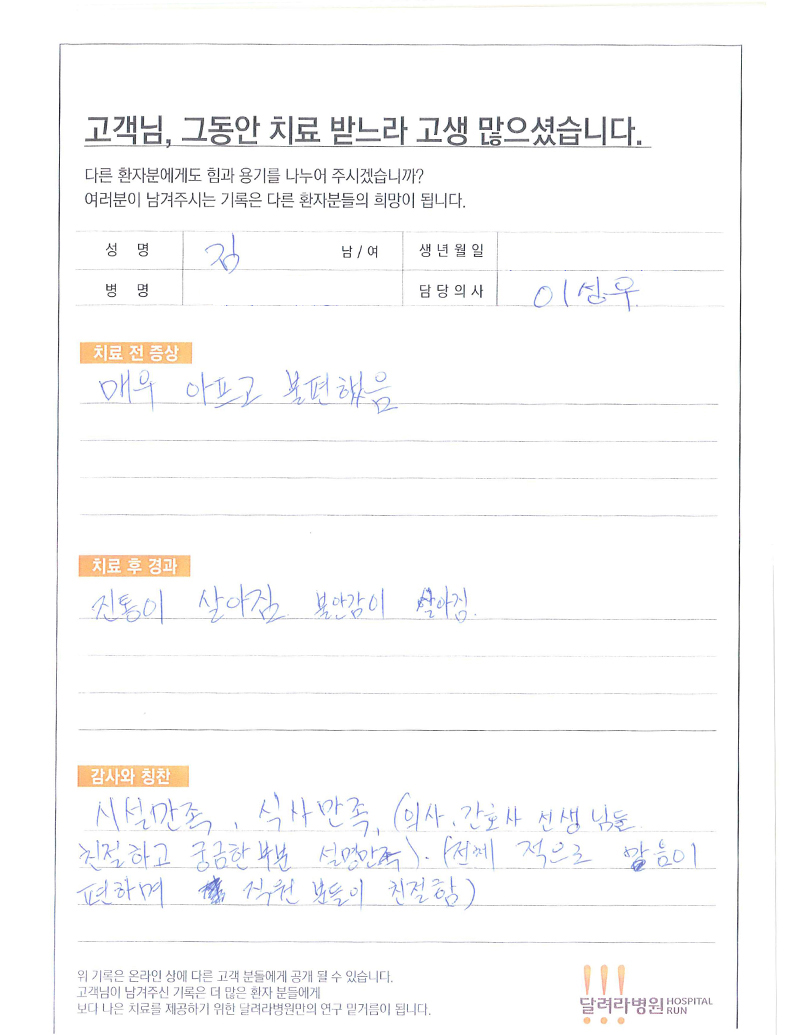 고객님, 그동안 치료 받느라 고생 많으셨습니다.
다른 환자분에게도 힘과 용기를 나누어 주시겠습니까?
여러분이 남겨주시는 기록은 다른 환자분들의 희망이 됩니다.
성 명 김 남 / 여 생년월일
병 명 담당의사 이성우
치료 전 증상
매우 아프고 불편했음
치료 후 경과
진통이 살아짐 불안감이 살아짐.
감사와 칭찬
시설만족, 식사만족, (의사, 간호사 선생님들
친절하고 궁금한 부분 설명만족). (전체 적으로 마음이
편하며 직원 분들이 친절함)
위 기록은 온라인 상에 다른 고객 분들에게 공개 될 수 있습니다.
고객님이 남겨주신 기록은 더 많은 환자 분들에게
보다 나은 치료를 제공하기 위한 달려라병원만의 연구 밑거름이 됩니다.
달려라병원 HOSPITAL RUN